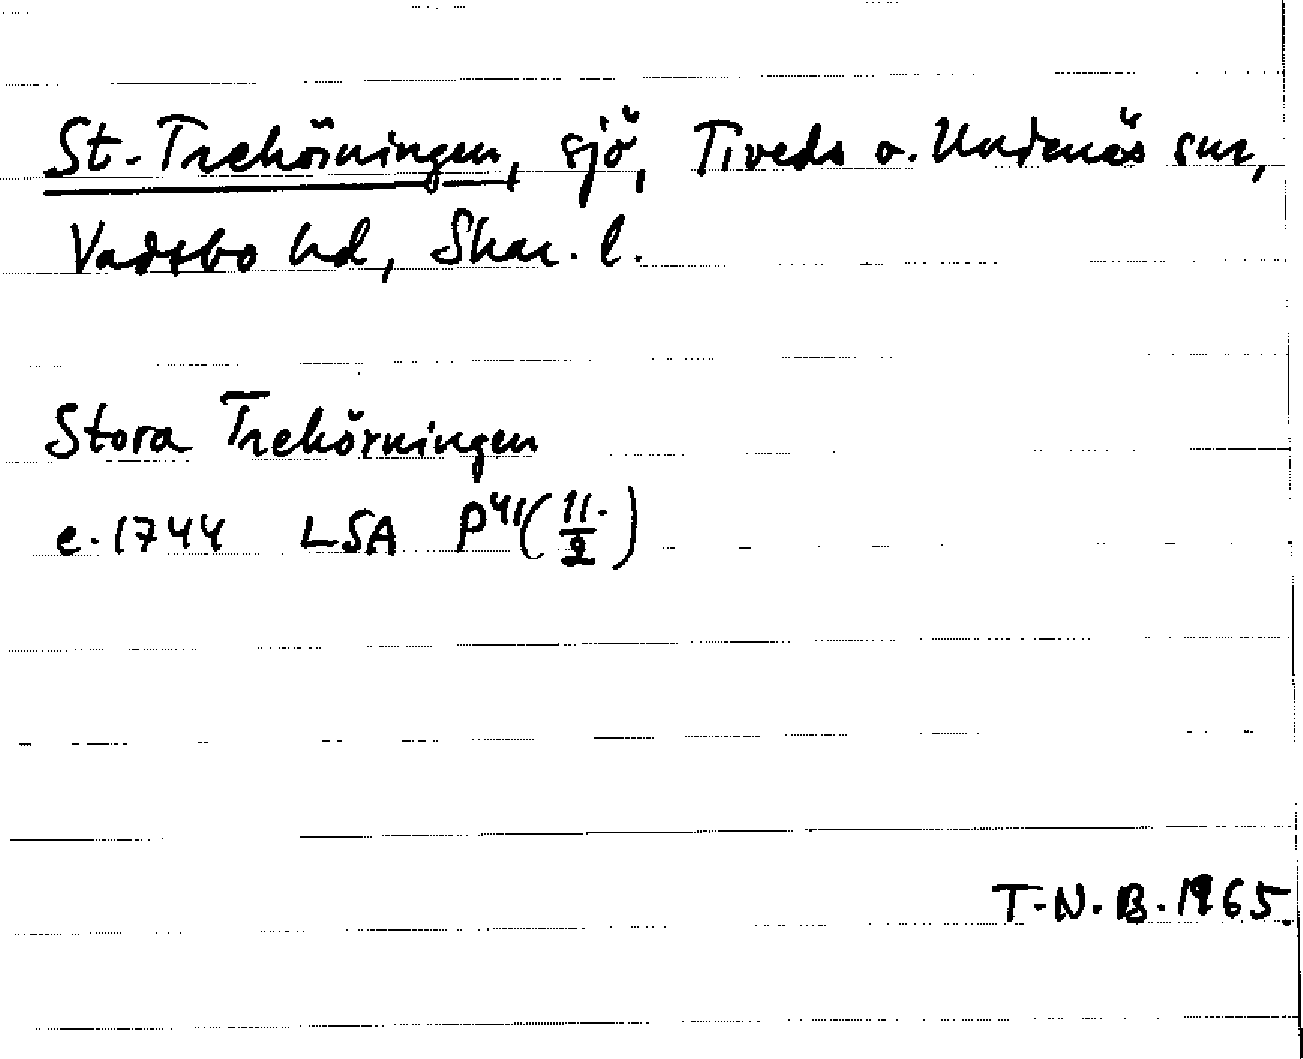 St. Trehörningen, sjö, Tiveds o. Undenäs snr,
Vadsbo hd, Skar. l.
Stora Trehörningen
e. 1744 LSA P41 (11/2)
T.N.B. 1965.